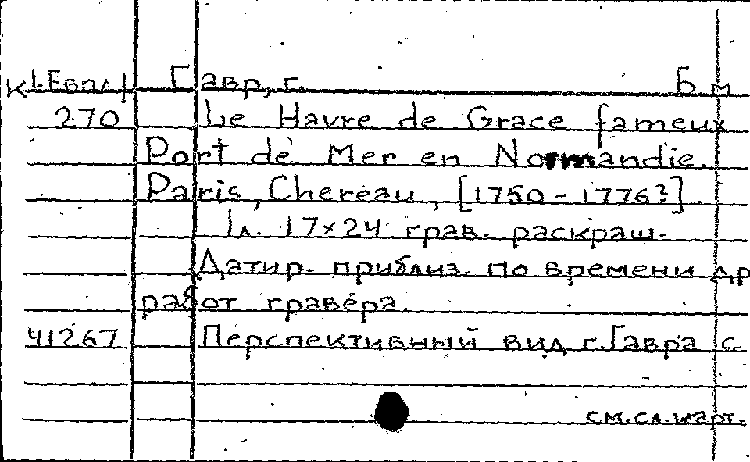 К 1-Евл-1 Гавр, г. Б.м
270 Le Havre de Grace fameux
Port de Mer en Normandie.
Paris, Chereau, [1750-1776?].
1л. 17×24 грав. раскраш.
Датир. приблиз. по времени др
работ гравера.
41267 Перспективный вид г. Гавра с
см. сл. карт.